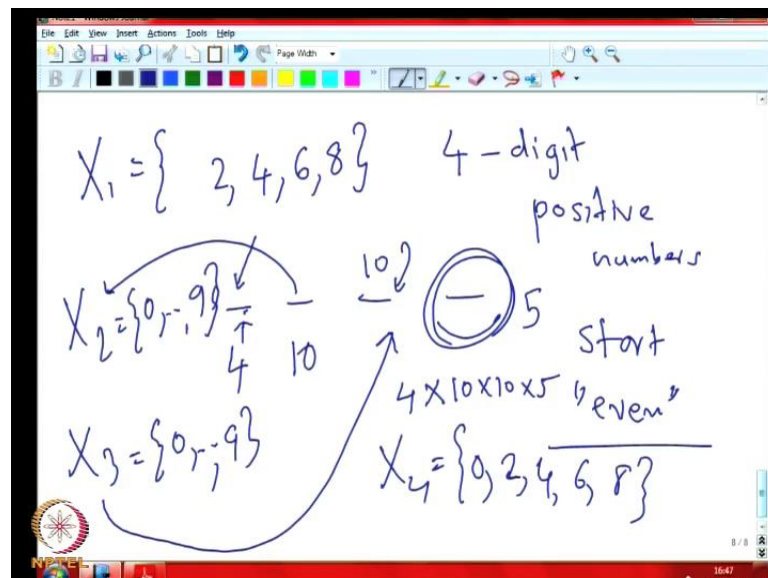 File Edit View Insert Actions Tools Help
Page Width
B I
X₁ = { 2, 4, 6, 8} 4-digit
positive
numbers
X₂ = {0, -, 9} 4 10 10 5
start
4 X 10 X 10 X 5 "even"
X₃ = {0, -, 9}
X₄ = {0, 2, 4, 6, 8}
8 / 8
NPTEL
16:47